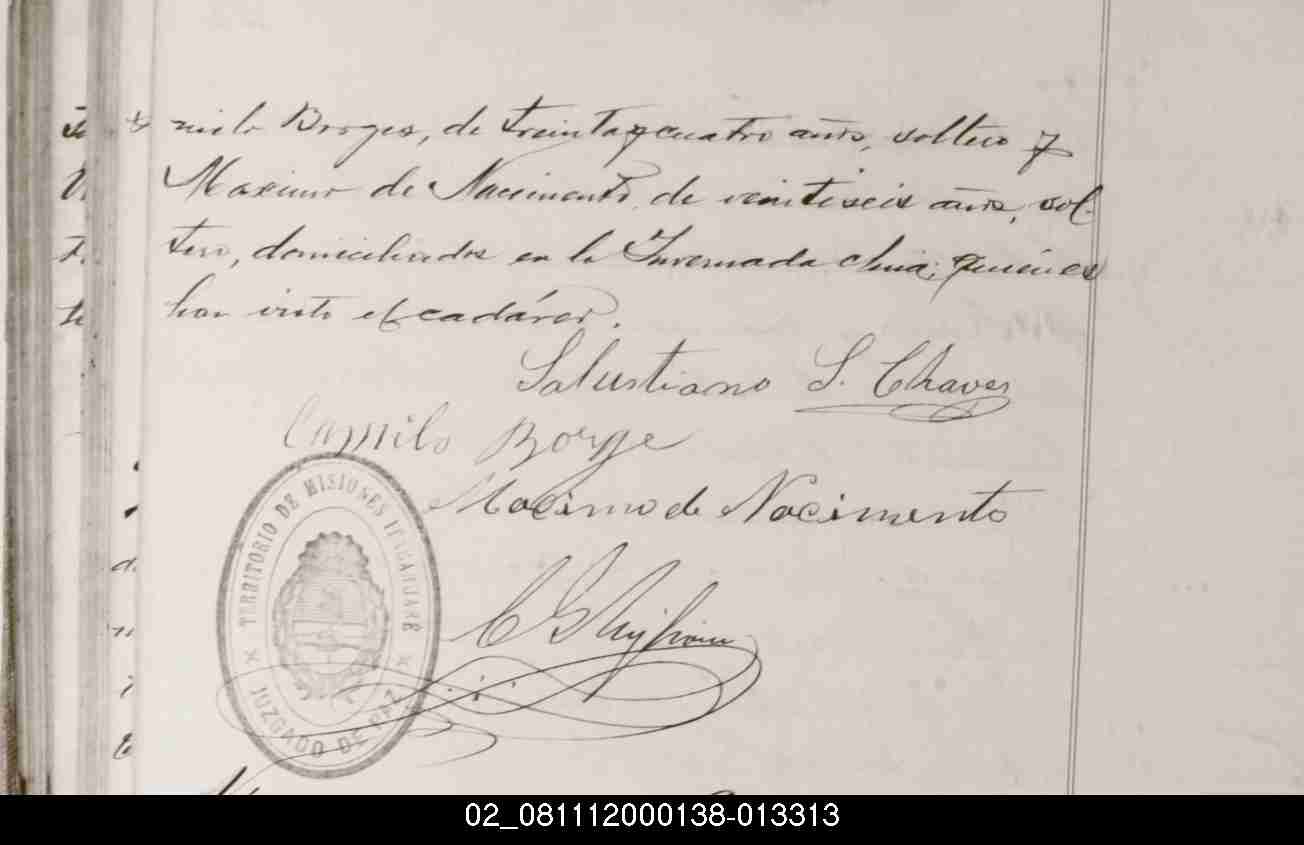 milo Borges, de treinta y cuatro años, soltero y
Maximo de Nacimento, de veintiseis años, sol-
tero, domiciliados en la Invernada chica; quiénes
han visto el cadáver.
Salustiano S. Chaves
Camilo Borge
Macimo de Nacimento
TERRITORIO DE MISIONES
JUZGADO DE PAZ
02_081112000138-013313